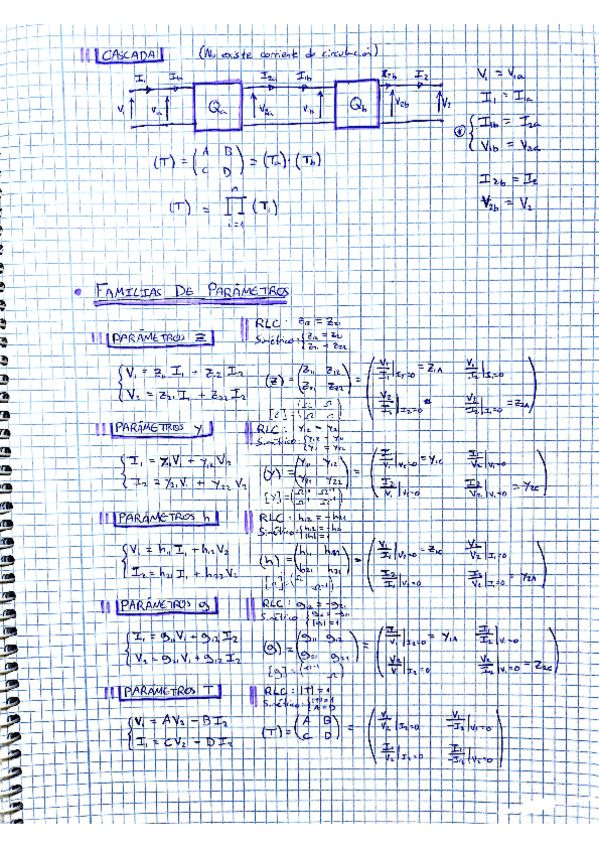 CASCADA (No existe corriente de circulación)
I₁ I₁ₐ I₂ₐ I₁b I₂b I₂
V₁ V₁ₐ Qₐ V₂ₐ V₁b Qb V₂b V₂
V₁ = V₁ₐ
I₁ = I₁ₐ
I₁b = I₂ₐ
V₁b = V₂ₐ
I₂b = I₂
V₂b = V₂
(T) = (A B
C D) = (Tₐ)·(Tb)
(T) = ∏ (Tᵢ)
n
i=1
• FAMILIAS DE PARÁMETROS
PARÁMETROS Z
RLC: Z₁₂ = Z₂₁
Simétrico: {Z₁₂ = Z₂₁
Z₁₁ = Z₂₂
V₁ = Z₁₁ I₁ + Z₁₂ I₂
V₂ = Z₂₁ I₁ + Z₂₂ I₂
(Z) = (Z₁₁ Z₁₂
Z₂₁ Z₂₂) = (V₁/I₁|I₂=0 = Z₁A V₁/I₂|I₁=0
V₂/I₁|I₂=0 V₂/I₂|I₁=0 = Z₂A)
PARÁMETROS Y
RLC: Y₁₂ = Y₂₁
Simétrico: {Y₁₂ = Y₂₁
Y₁₁ = Y₂₂
I₁ = Y₁₁ V₁ + Y₁₂ V₂
I₂ = Y₂₁ V₁ + Y₂₂ V₂
(Y) = (Y₁₁ Y₁₂
Y₂₁ Y₂₂) = (I₁/V₁|V₂=0 = Y₁C I₁/V₂|V₁=0
I₂/V₁|V₂=0 I₂/V₂|V₁=0 = Y₂C)
PARÁMETROS h
RLC: h₁₂ = -h₂₁
Simétrico: {h₁₂ = -h₂₁
|h| = 1
V₁ = h₁₁ I₁ + h₁₂ V₂
I₂ = h₂₁ I₁ + h₂₂ V₂
(h) = (V₁/I₁|V₂=0 = Z₁C V₁/V₂|I₁=0
I₂/I₁|V₂=0 I₂/V₂|I₁=0 = Y₂A)
PARÁMETROS g
RLC: g₁₂ = -g₂₁
Simétrico: {g₁₂ = -g₂₁
|g| = 1
(g) = (g₁₁ g₁₂
g₂₁ g₂₂) = (I₁/V₁|I₂=0 = Y₁A I₁/I₂|V₁=0
V₂/V₁|I₂=0 V₂/I₂|V₁=0 = Z₂C)
PARÁMETROS T
RLC: |T| = 1
Simétrico: {|T| = 1
A = D
V₁ = AV₂ - BI₂
I₁ = CV₂ - DI₂
(T) = (A B
C D) = (V₁/V₂|I₂=0 V₁/-I₂|V₂=0
I₁/V₂|I₂=0 I₁/-I₂|V₂=0)